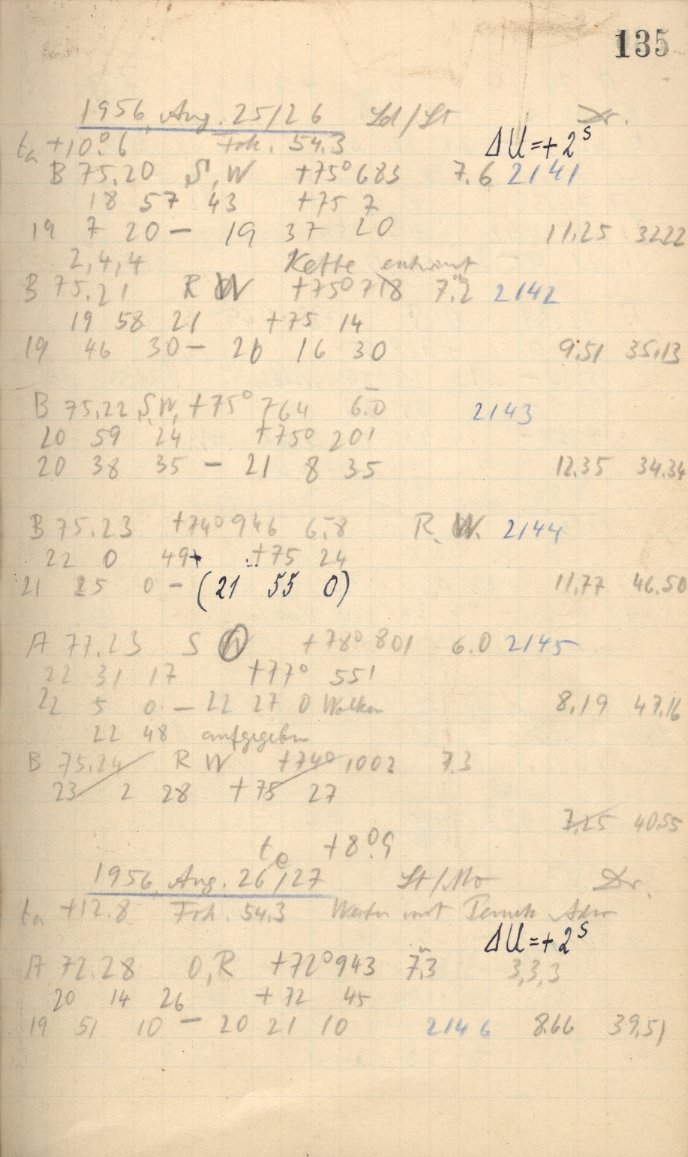 135
1956, Aug. 25/26 Ld/St Dr.
ta +10.°6 Fok. 54.3 ΔU=+2ˢ
B 75.20 S, W +75°683 7.6 2141
18 57 43 +75 7
19 7 20 — 19 37 20 11,25 32.22
2,4,4 Kette
B 75.21 R W +75°718 7.2 2142
19 58 21 +75 14
19 46 30 — 20 16 30 9.51 35.13
B 75.22 S, W, +75° 764 6.0 2143
20 59 24 +75° 20'
20 38 35 — 21 8 35 12.35 34.34
B 75.23 +74°946 6.8 R. W. 2144
22 0 49 +75 24
21 25 0 — (21 55 0) 11.77 46.50
A 77.23 S W +78°801 6.0 2145
22 31 17 +77° 55'
22 5 0 — 22 27 0 Wolken 8,19 47,16
22 48 aufgegeben
B 75.24 R W +74° 1002 7.3
23 2 28 +75 27
7,25 40.55
te +8°.9
1956, Aug. 26/27 St/Mo Dr.
ta +12.8 Fok. 54.3 mit
ΔU=+2ˢ
A 72.28 O, R +72°943 7.3 3,3,3
20 14 26 +72 45
19 51 10 — 20 21 10 2146 8.66 39.51